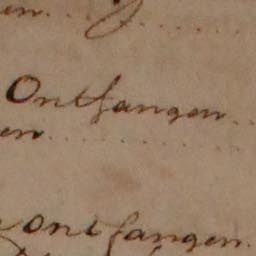 en
Ontfangen
en
ontfangen